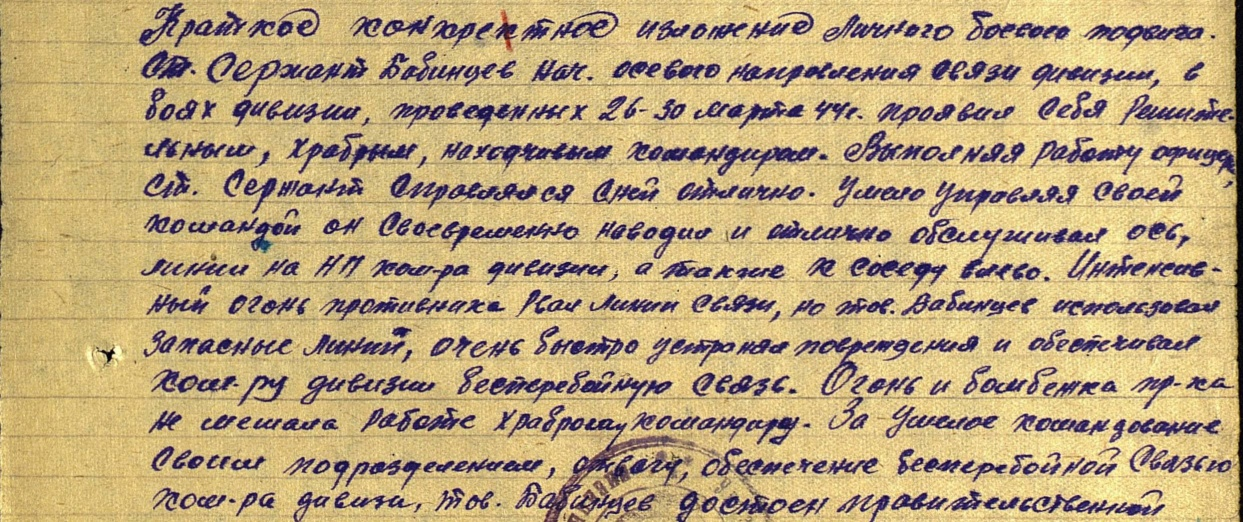 Краткое конкретное изложение личного боевого подвига.
Ст. Сержант Бабинцев нач. осевого направления связи дивизии, в
боях дивизии, проведенных 26-30 марта 44г. проявил себя Решите-
льным, храбрым, находчивым командиром. Выполняя работу офицера,
Ст. Сержант справлялся сней отлично. Умело управляя своей
командой он своевременно наводил и отлично обслуживал ось,
линии на НП ком-ра дивизии, а также к соседу влево. Интенсив-
ный огонь противника рвал линии связи, но тов. Бабинцев использовал
запасные линии, очень быстро устранял повреждения и обеспечивал
ком-ру дивизии бесперебойную связь. Огонь и бомбежка пр-ка
не мешала работе храброму командиру. За умелое командование
своим подразделением, отвагу, обеспечение бесперебойной связью
ком-ра дивизи, тов. Бабинцев достоен правительственной